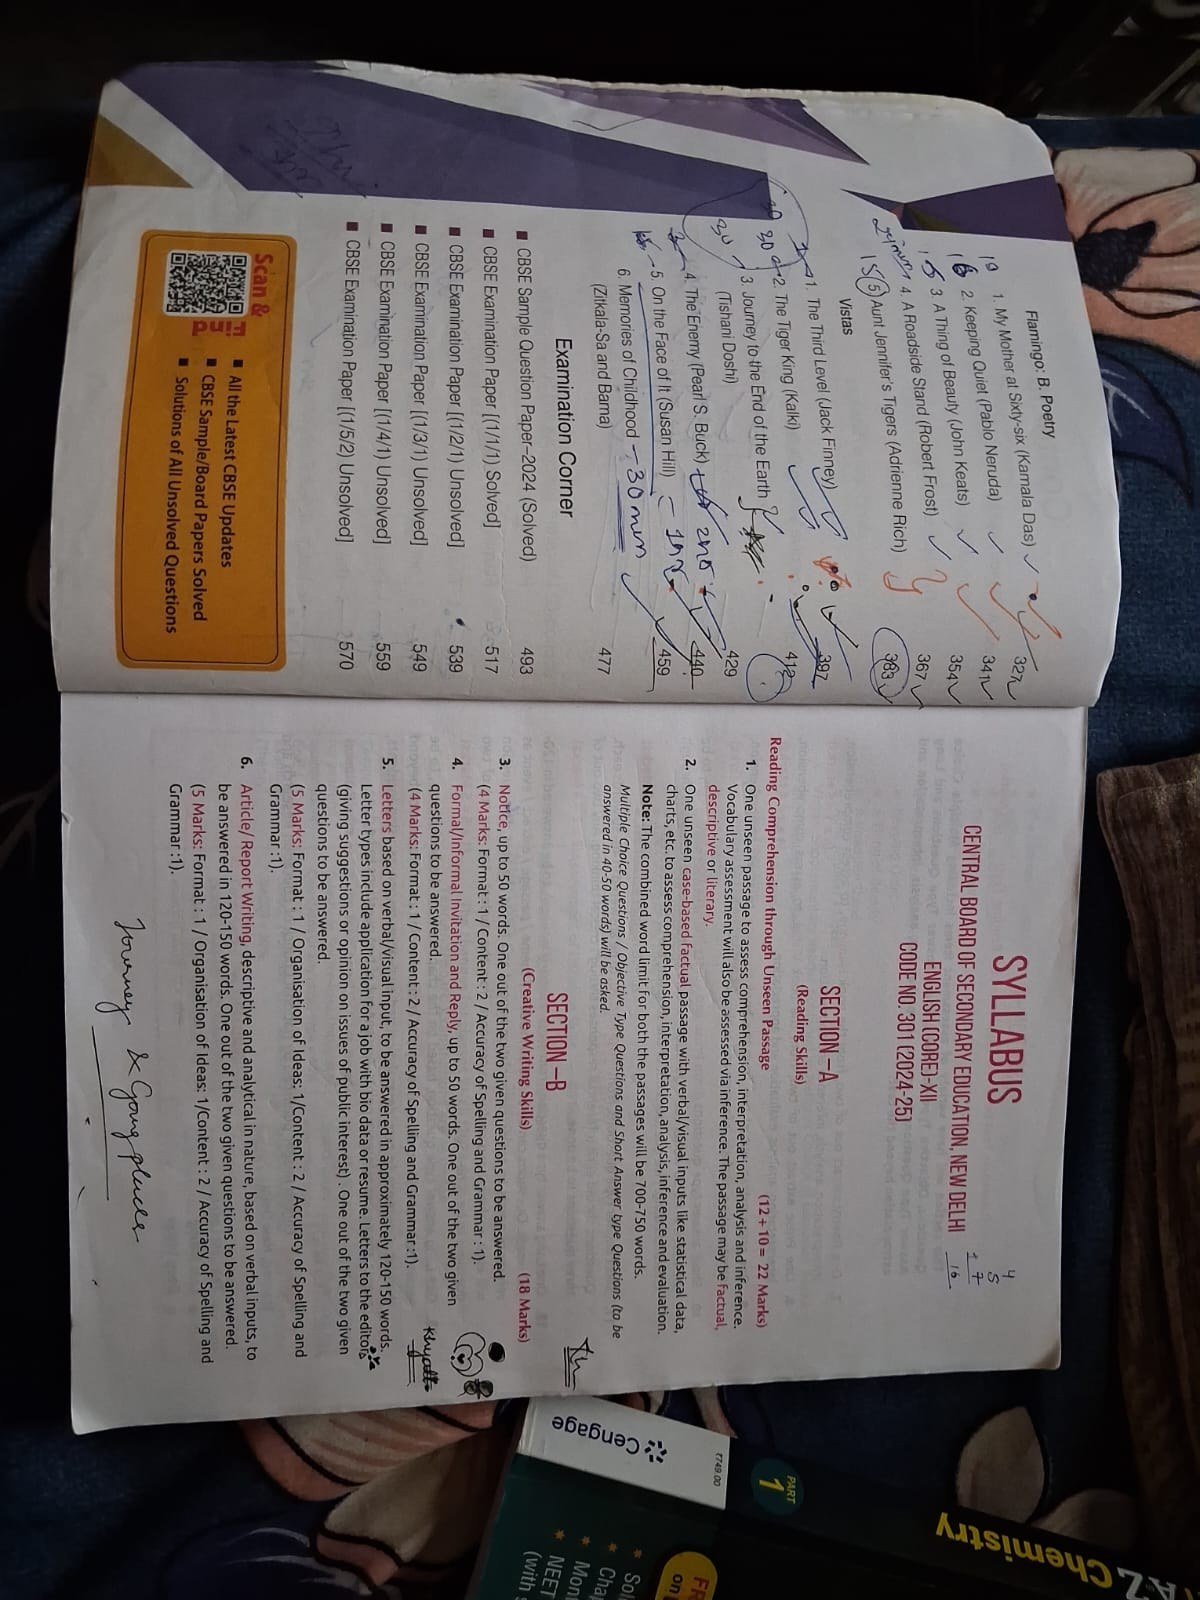 Flamingo: B. Poetry
1. My Mother at Sixty-six (Kamala Das) 327
2. Keeping Quiet (Pablo Neruda) 341
3. A Thing of Beauty (John Keats) 354
4. A Roadside Stand (Robert Frost) 367
15 5 Aunt Jennifer's Tigers (Adrienne Rich) 383
Vistas
1. The Third Level (Jack Finney) 397
2. The Tiger King (Kalki) 412
3. Journey to the End of the Earth
(Tishani Doshi) 429
4. The Enemy (Pearl S. Buck) 440
5. On the Face of It (Susan Hill) 459
6. Memories of Childhood - 30 min
(Zitkala-Sa and Bama) 477
Examination Corner
■ CBSE Sample Question Paper–2024 (Solved) 493
■ CBSE Examination Paper [(1/1/1) Solved] 517
■ CBSE Examination Paper [(1/2/1) Unsolved] 539
■ CBSE Examination Paper [(1/3/1) Unsolved] 549
■ CBSE Examination Paper [(1/4/1) Unsolved] 559
■ CBSE Examination Paper [(1/5/2) Unsolved] 570
Scan &
■ All the Latest CBSE Updates
■ CBSE Sample/Board Papers Solved
■ Solutions of All Unsolved Questions
SYLLABUS
CENTRAL BOARD OF SECONDARY EDUCATION, NEW DELHI
ENGLISH (CORE)-XII
CODE NO. 301 (2024-25)
4
5
+ 7
16
SECTION –A
(Reading Skills)
Reading Comprehension through Unseen Passage (12+10= 22 Marks)
1. One unseen passage to assess comprehension, interpretation, analysis and inference.
Vocabulary assessment will also be assessed via inference. The passage may be Factual,
descriptive or literary.
2. One unseen case-based factual passage with verbal/visual inputs like statistical data,
charts, etc. to assess comprehension, interpretation, analysis, inference and evaluation.
Note: The combined word limit for both the passages will be 700-750 words.
Multiple Choice Questions / Objective Type Questions and Short Answer type Questions (to be
answered in 40-50 words) will be asked.
SECTION –B
(Creative Writing Skills) (18 Marks)
3. Notice, up to 50 words. One out of the two given questions to be answered.
(4 Marks: Format : 1 / Content : 2 / Accuracy of Spelling and Grammar : 1).
4. Formal/Informal Invitation and Reply, up to 50 words. One out of the two given
questions to be answered.
(4 Marks: Format : 1 / Content : 2 / Accuracy of Spelling and Grammar :1).
5. Letters based on verbal/visual input, to be answered in approximately 120-150 words.
Letter types include application for a job with bio data or resume. Letters to the editor
(giving suggestions or opinion on issues of public interest) . One out of the two given
questions to be answered.
(5 Marks: Format : 1 / Organisation of Ideas: 1/Content : 2 / Accuracy of Spelling and
Grammar :1).
6. Article/ Report Writing, descriptive and analytical in nature, based on verbal inputs, to
be answered in 120-150 words. One out of the two given questions to be answered.
(5 Marks: Format : 1 / Organisation of Ideas: 1/Content : 2 / Accuracy of Spelling and
Grammar :1).
Journey &
Cengage
₹749.00
PART
1
AZ Chemistry